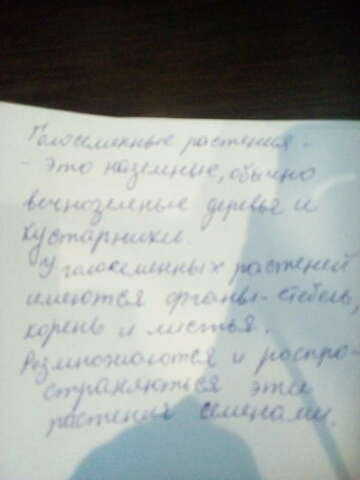 Голосеменные растения -
- это наземные, обычно
вечнозеленые деревья и
кустарники.
У голосеменных растений
имеются органы- стебель,
корень и листья.
Размножаются и распро-
страняються эти
растения семенами.